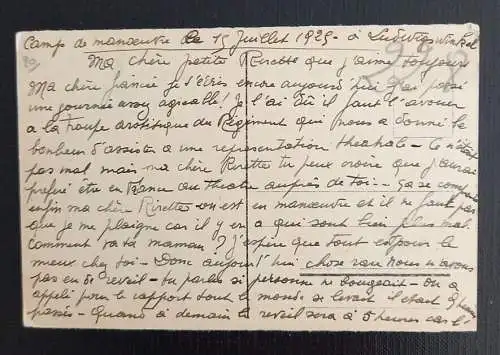 Camp de manœuvre le 15 Juillet 1925 - à Ludwigswinkel
Ma chère petite Rirette que j'aime toujours
Ma chère fiancée je t'écris encore aujourd'hui j'ai passé
une journée assez agréable! Je l'ai dû il faut l'avouer
a la troupe artistique du Régiment qui nous a donné le
bonheur d'assister a une représentation théatrale - Ce n'était
pas mal mais ma chère Rirette tu peux croire que j'aurais
préféré être en France au théatre auprès de toi - Ça se comprend
enfin ma chère Rirette on est en manœuvre et il ne faut pas
que je me plaigne car il y en a qui sont bien plus mal.
Comment va ta maman? J'espère que tout est pour le
mieux chez toi - Donc aujourd'hui chose rare nous n'avons
pas eu de reveil - tu parles si personne ne bougeait - On a
appelé pour le rapport tout le monde se levait il était 9 heures
passés - Quand à demain le reveil sera à 5 heures car l'